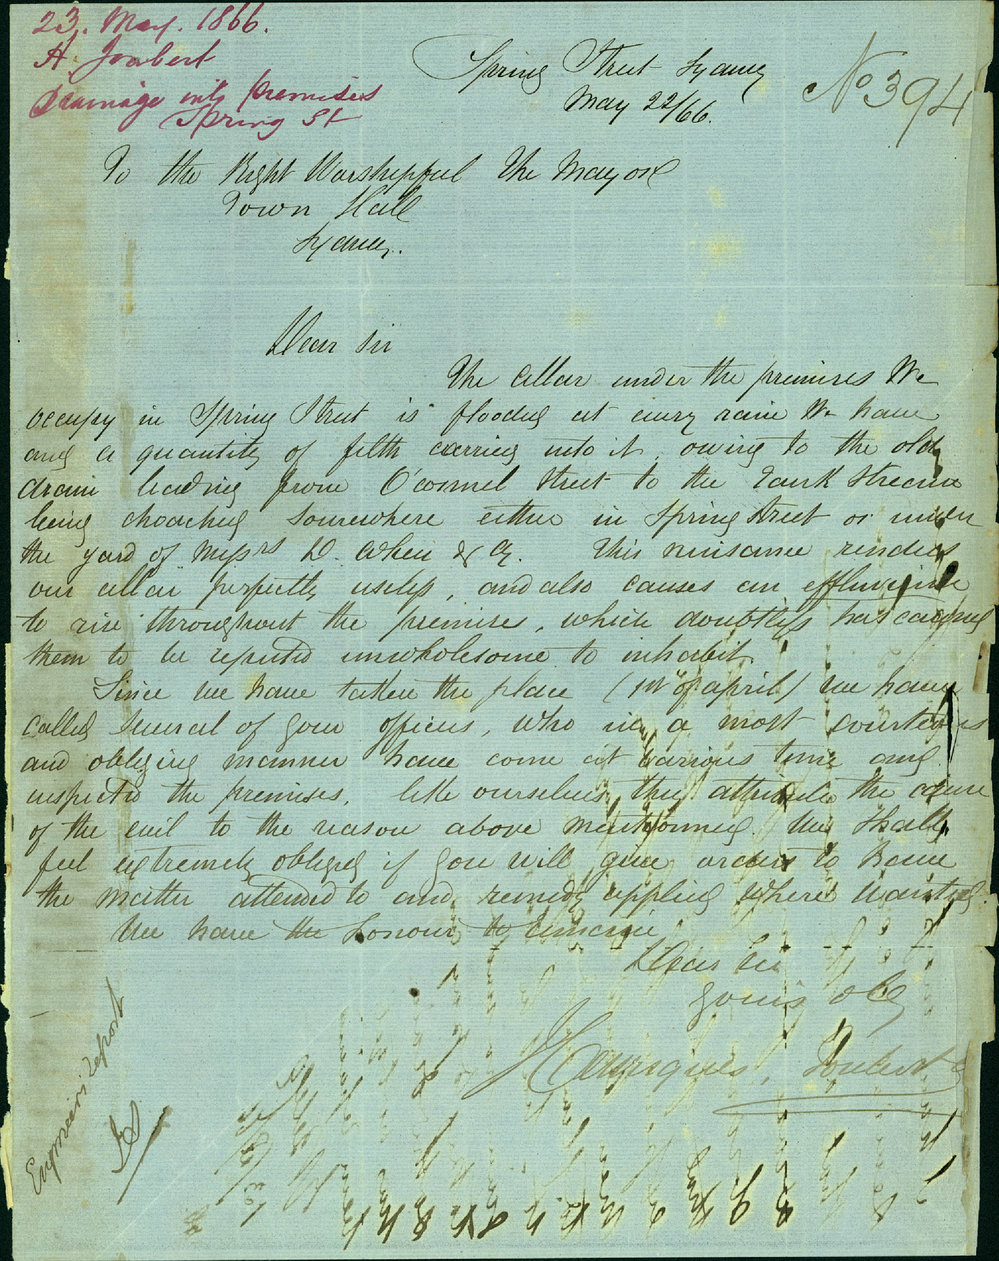 23. May. 1866.
H. Joubert
Drainage into premises
Spring St
No 394
Spring Street Sydney
May 22/66.
To the Right Worshipful The Mayor
Town Hall
Sydney.
Dear Sir
The cellar under the premises We
occupy in Spring Street is flooded at every rain We have
and a quantity of filth carried into it, owing to the old
drain leading from O'Connel Street to the Tank Stream
being choacked somewhere either in Spring Street or under
the yard of Messrs D. Cohen & Cy. This nuisance renders
our cellar perfectly useless, and also causes an effluvium
to rise throughout the premises, which doubtless has caused
them to be reputed unwholesome to inhabit.
Since we have taken the place (1st of April) we have
called several of your officers, who in a most courteous
and obliging manner have come at various time and
inspected the premises, like ourselves they attribute the cause
of the evil to the reason above mentionned. We shall
feel extremely obliged if you will give orders to have
the matter attended to and remedy applied where wanted.
We have the honour to remain
Dear Sir
yours oby
Joubert
Engineers report